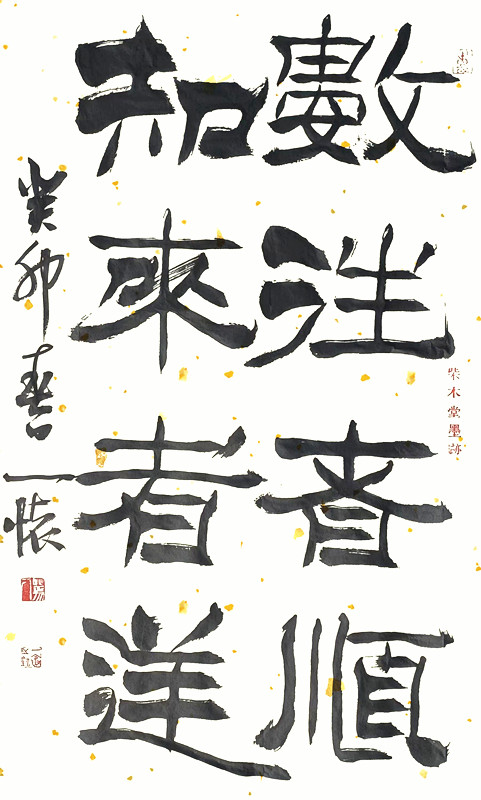 數往者順
知來者逆
癸卯春一懷
柴木堂墨跡